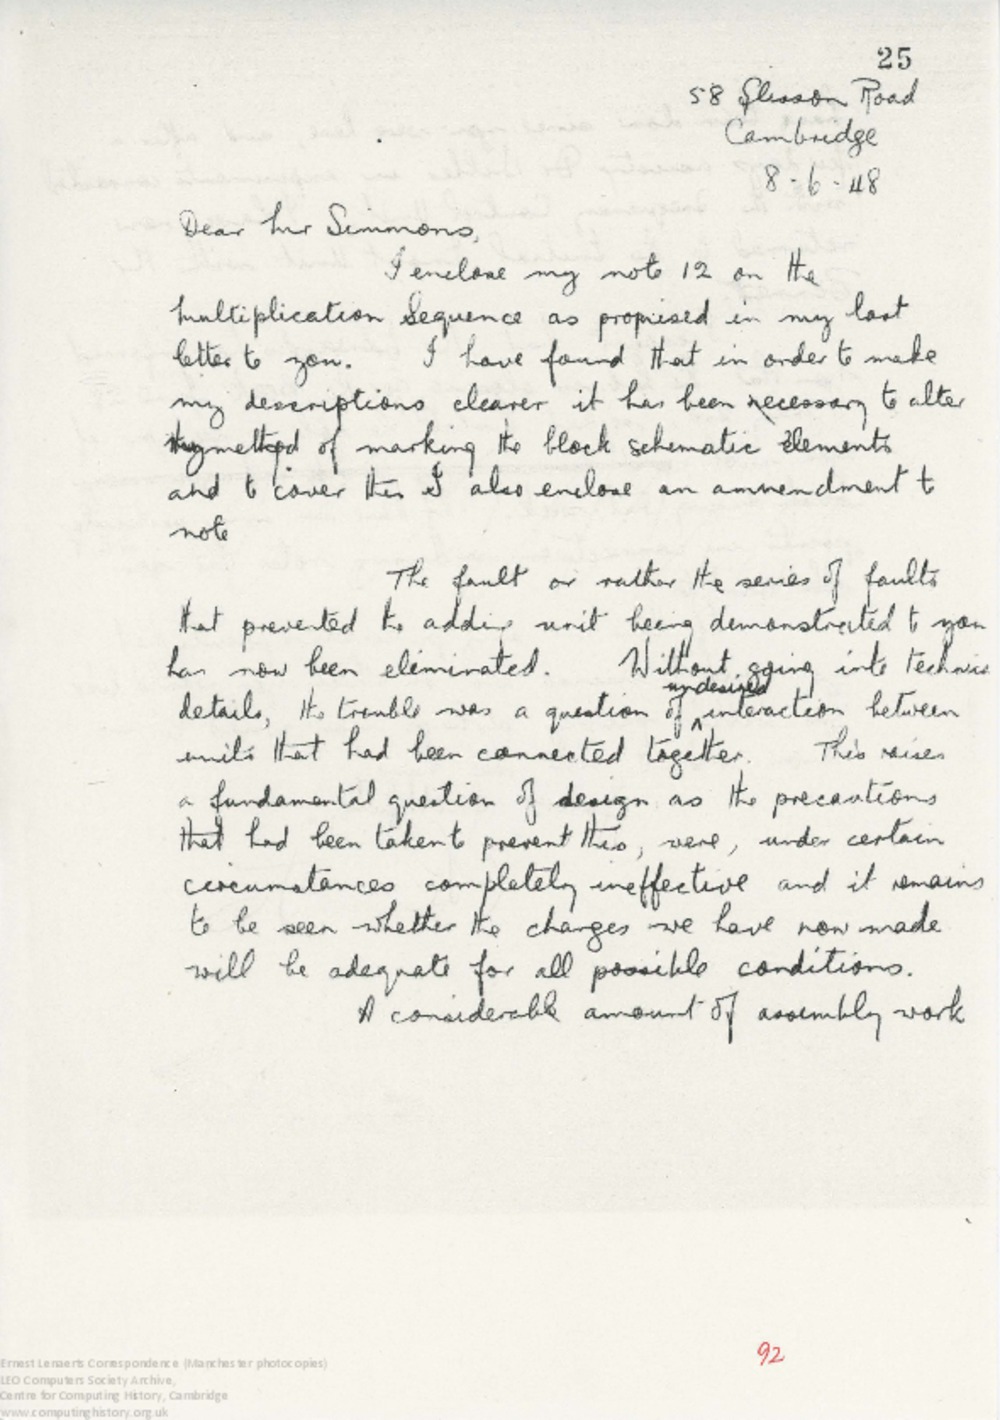 25
58 Glisson Road
Cambridge
8-6-48
Dear Mr Simmons,
I enclose my note 12 on the
multiplication Sequence as promised in my last
letter to you. I have found that in order to make
my descriptions clearer it has been necessary to alter
my method of marking the block schematic elements
and to cover this I also enclose an ammendment to
note
The fault or rather the series of faults
that prevented the adding unit being demonstrated to you
has now been eliminated. Without going into technic
undesired
details, the trouble was a question of interaction between
units that had been connected together. This raises
a fundamental question of design as the precautions
that had been taken to prevent this, were, under certain
circumstances completely ineffective and it remains
to be seen whether the changes we have now made
will be adequate for all possible conditions.
A considerable amount of assembly work
92
Ernest Lenaerts Correspondence (Manchester photocopies)
LEO Computers Society Archive,
Centre for Computing History, Cambridge
www.computinghistory.org.uk